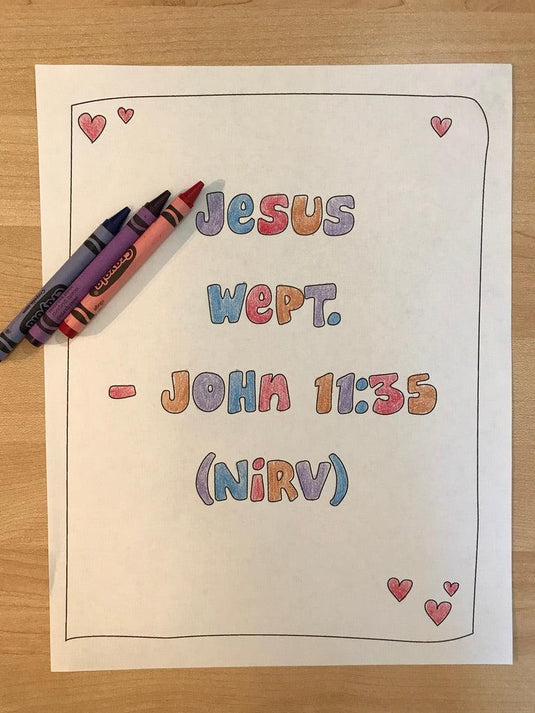 Jesus
wept.
- John 11:35
(NiRV)
Crayola